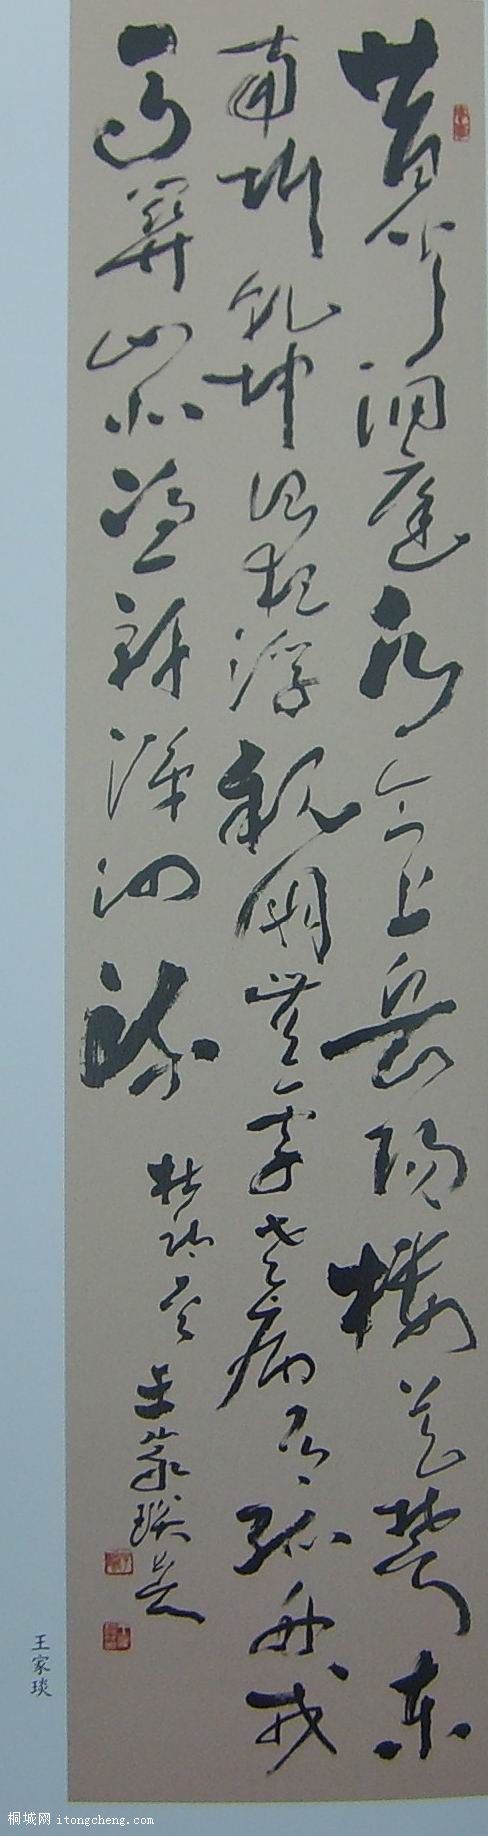 昔聞洞庭水今上岳陽樓吴楚東
南坼乾坤日夜浮親朋無一字老病有孤舟戎
馬關山北憑軒涕泗流
杜 王家琰書
王家琰
桐城网 itongcheng.com